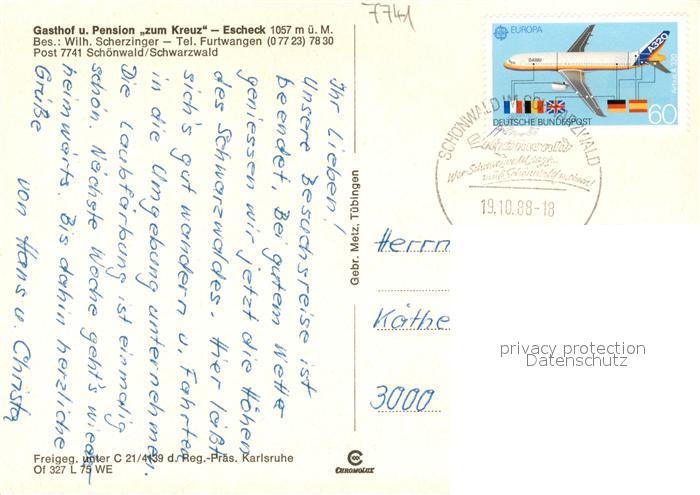 7741
Gasthof u. Pension „zum Kreuz“ – Escheck 1057 m ü. M.
Bes.: Wilh. Scherzinger – Tel. Furtwangen (0 77 23) 78 30
Post 7741 Schönwald/Schwarzwald
Ihr Lieben!
Unsere Besuchsreise ist
beendet. Bei gutem Wetter
geniessen wir jetzt die Höhen
des Schwarzwaldes. Hier läßt
sich's gut wandern u. Fahrten
in die Umgebung unternehmen.
Die Laubfärbung ist einmalig
schön. Nächste Woche geht's wieder
heimwärts. Bis dahin herzliche
Grüße
von Hans u. Christa
Gebr. Metz, Tübingen
EUROPA
A320
Airbus A 320
DEUTSCHE BUNDESPOST
60
SCHÖNWALD IM SCHWARZWALD
19.10.88-18
Herrn
Käthe
3000
privacy protection
Datenschutz
Freigeg. unter C 21/4139 d. Reg.-Präs. Karlsruhe
Of 327 L 75 WE
CHROMOLUX